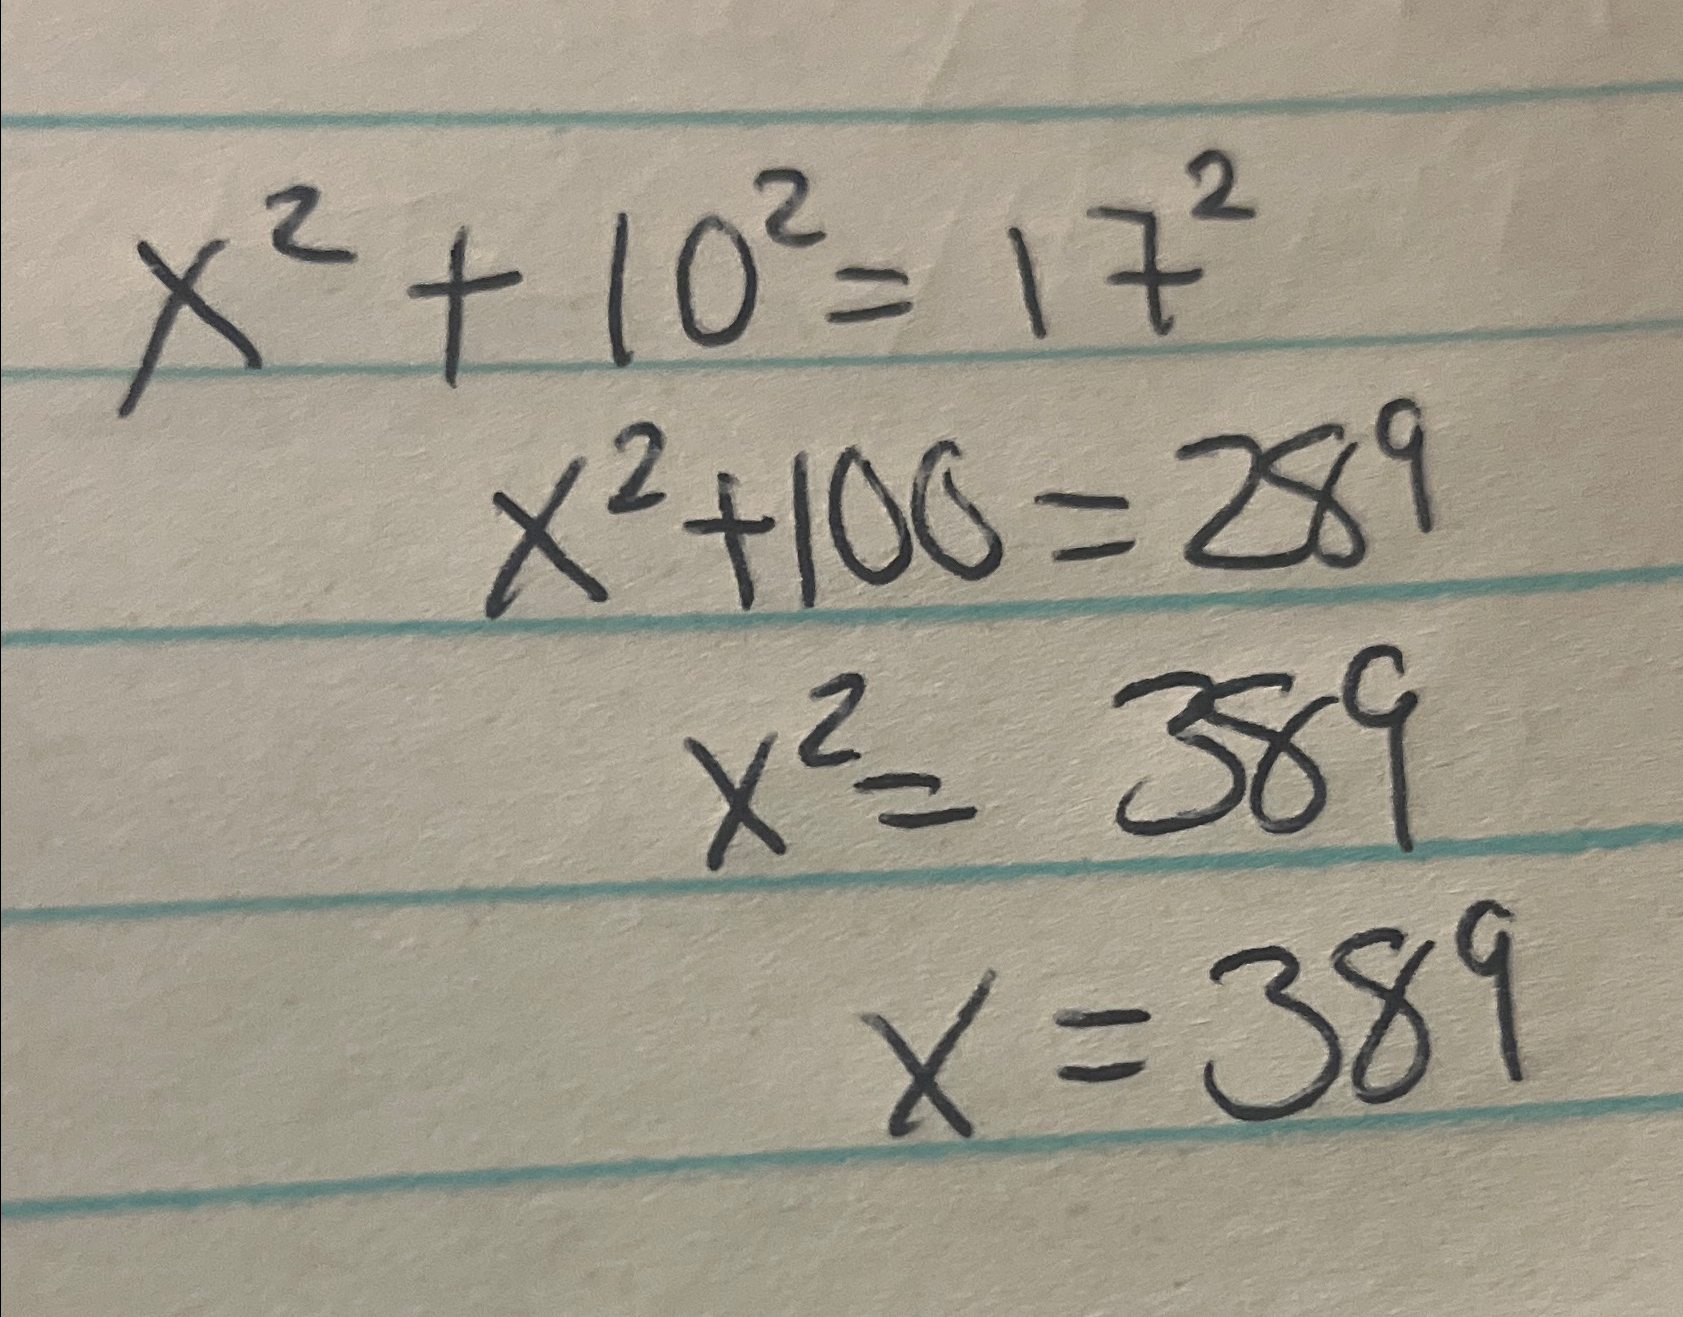 x² + 10² = 17²
x² + 100 = 289
x² = 389
x = 389